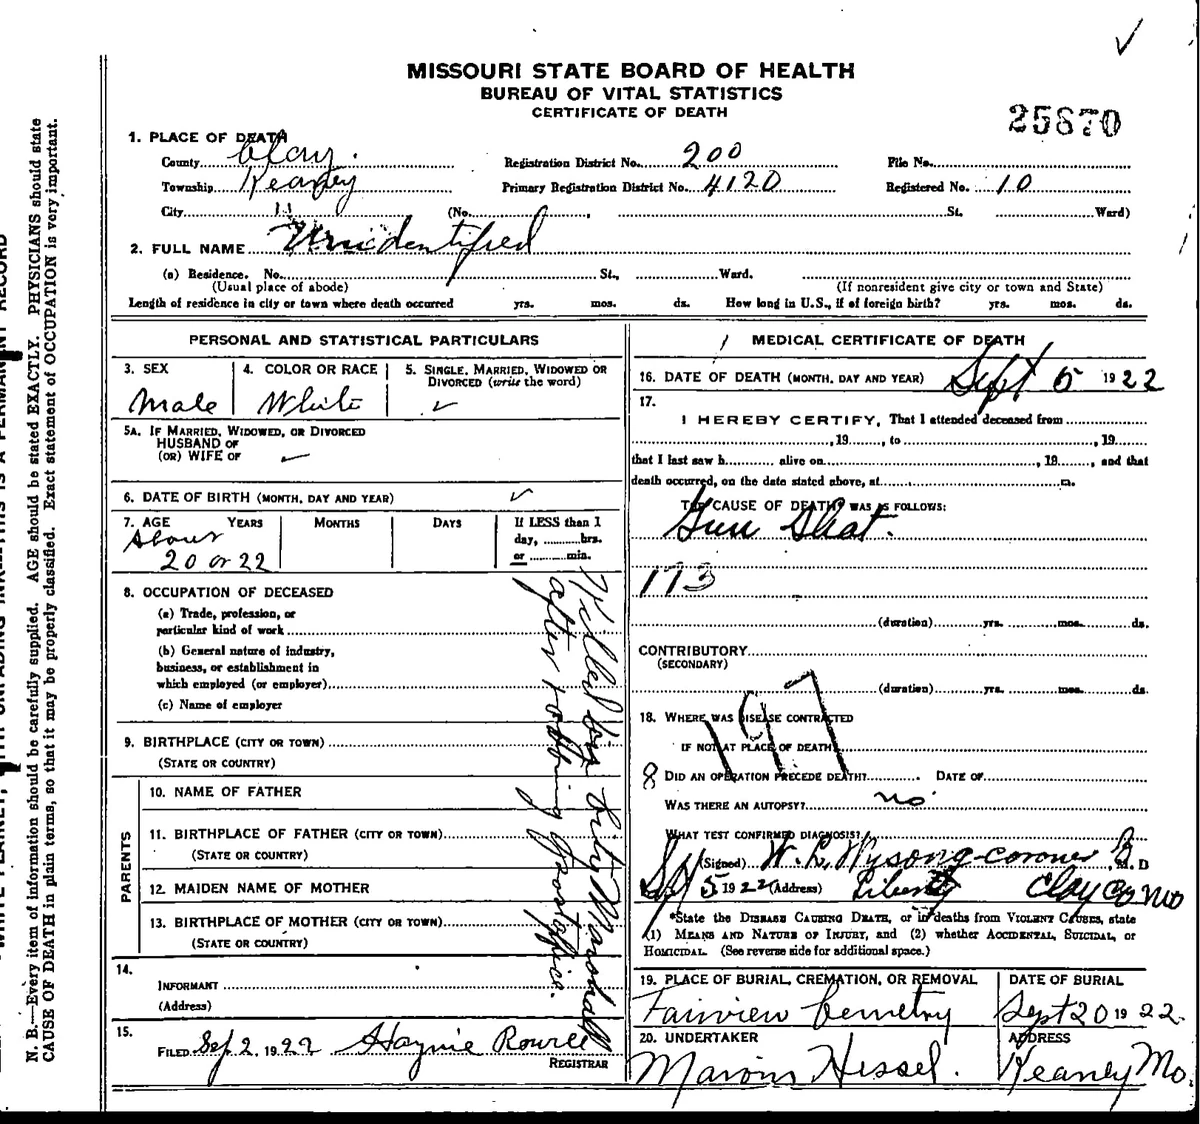 MISSOURI STATE BOARD OF HEALTH
BUREAU OF VITAL STATISTICS
CERTIFICATE OF DEATH
25870
1. PLACE OF DEATH
County Clay. Registration District No. 200 File No.
Township Kearney Primary Registration District No. 4120 Registered No. 10
City 11 (No. , St. Ward)
2. FULL NAME Unidentified
(a) Residence. No. St., Ward.
(Usual place of abode) (If nonresident give city or town and State)
Length of residence in city or town where death occurred yrs. mos. ds. How long in U.S., if of foreign birth? yrs. mos. ds.
PERSONAL AND STATISTICAL PARTICULARS
3. SEX 4. COLOR OR RACE 5. SINGLE, MARRIED, WIDOWED OR
DIVORCED (write the word)
Male White ✓
5A. IF MARRIED, WIDOWED, OR DIVORCED
HUSBAND OF
(OR) WIFE OF
6. DATE OF BIRTH (MONTH, DAY AND YEAR) ✓
7. AGE YEARS MONTHS DAYS If LESS than 1
day, hrs.
or min.
About
20 or 22
8. OCCUPATION OF DECEASED
(a) Trade, profession, or
particular kind of work
(b) General nature of industry,
business, or establishment in
which employed (or employer)
(c) Name of employer
9. BIRTHPLACE (CITY OR TOWN)
(STATE OR COUNTRY)
PARENTS
10. NAME OF FATHER
11. BIRTHPLACE OF FATHER (CITY OR TOWN)
(STATE OR COUNTRY)
12. MAIDEN NAME OF MOTHER
13. BIRTHPLACE OF MOTHER (CITY OR TOWN)
(STATE OR COUNTRY)
14.
INFORMANT
(Address)
15.
FILED Sep 2, 1922 Haynie
REGISTRAR
Killed by City Marshall
after robbing postoffice.
MEDICAL CERTIFICATE OF DEATH
16. DATE OF DEATH (MONTH, DAY AND YEAR) Sept 5 1922
17.
I HEREBY CERTIFY, That I attended deceased from
, 19 , to , 19
that I last saw h alive on , 19 , and that
death occurred, on the date stated above, at m.
THE CAUSE OF DEATH* WAS AS FOLLOWS:
Gun Shot.
173
(duration) yrs. mos. ds.
CONTRIBUTORY
(SECONDARY)
(duration) yrs. mos. ds.
197
18. WHERE WAS DISEASE CONTRACTED
IF NOT AT PLACE OF DEATH
8 DID AN OPERATION PRECEDE DEATH? DATE OF
WAS THERE AN AUTOPSY? no
WHAT TEST CONFIRMED DIAGNOSIS?
(Signed) W. L. Wysong-coroner M.D
5 1922 (Address) Liberty Clay Co Mo
*State the DISEASE CAUSING DEATH, or in deaths from VIOLENT CAUSES, state
(1) MEANS AND NATURE OF INJURY, and (2) whether ACCIDENTAL, SUICIDAL, or
HOMICIDAL. (See reverse side for additional space.)
19. PLACE OF BURIAL, CREMATION, OR REMOVAL DATE OF BURIAL
Fairview Cemetry Sept 20 1922.
20. UNDERTAKER ADDRESS
Hessel. Kearney Mo.
N. B.—Every item of information should be carefully supplied. AGE should be stated EXACTLY. PHYSICIANS should state
CAUSE OF DEATH in plain terms, so that it may be properly classified. Exact statement of OCCUPATION is very important.